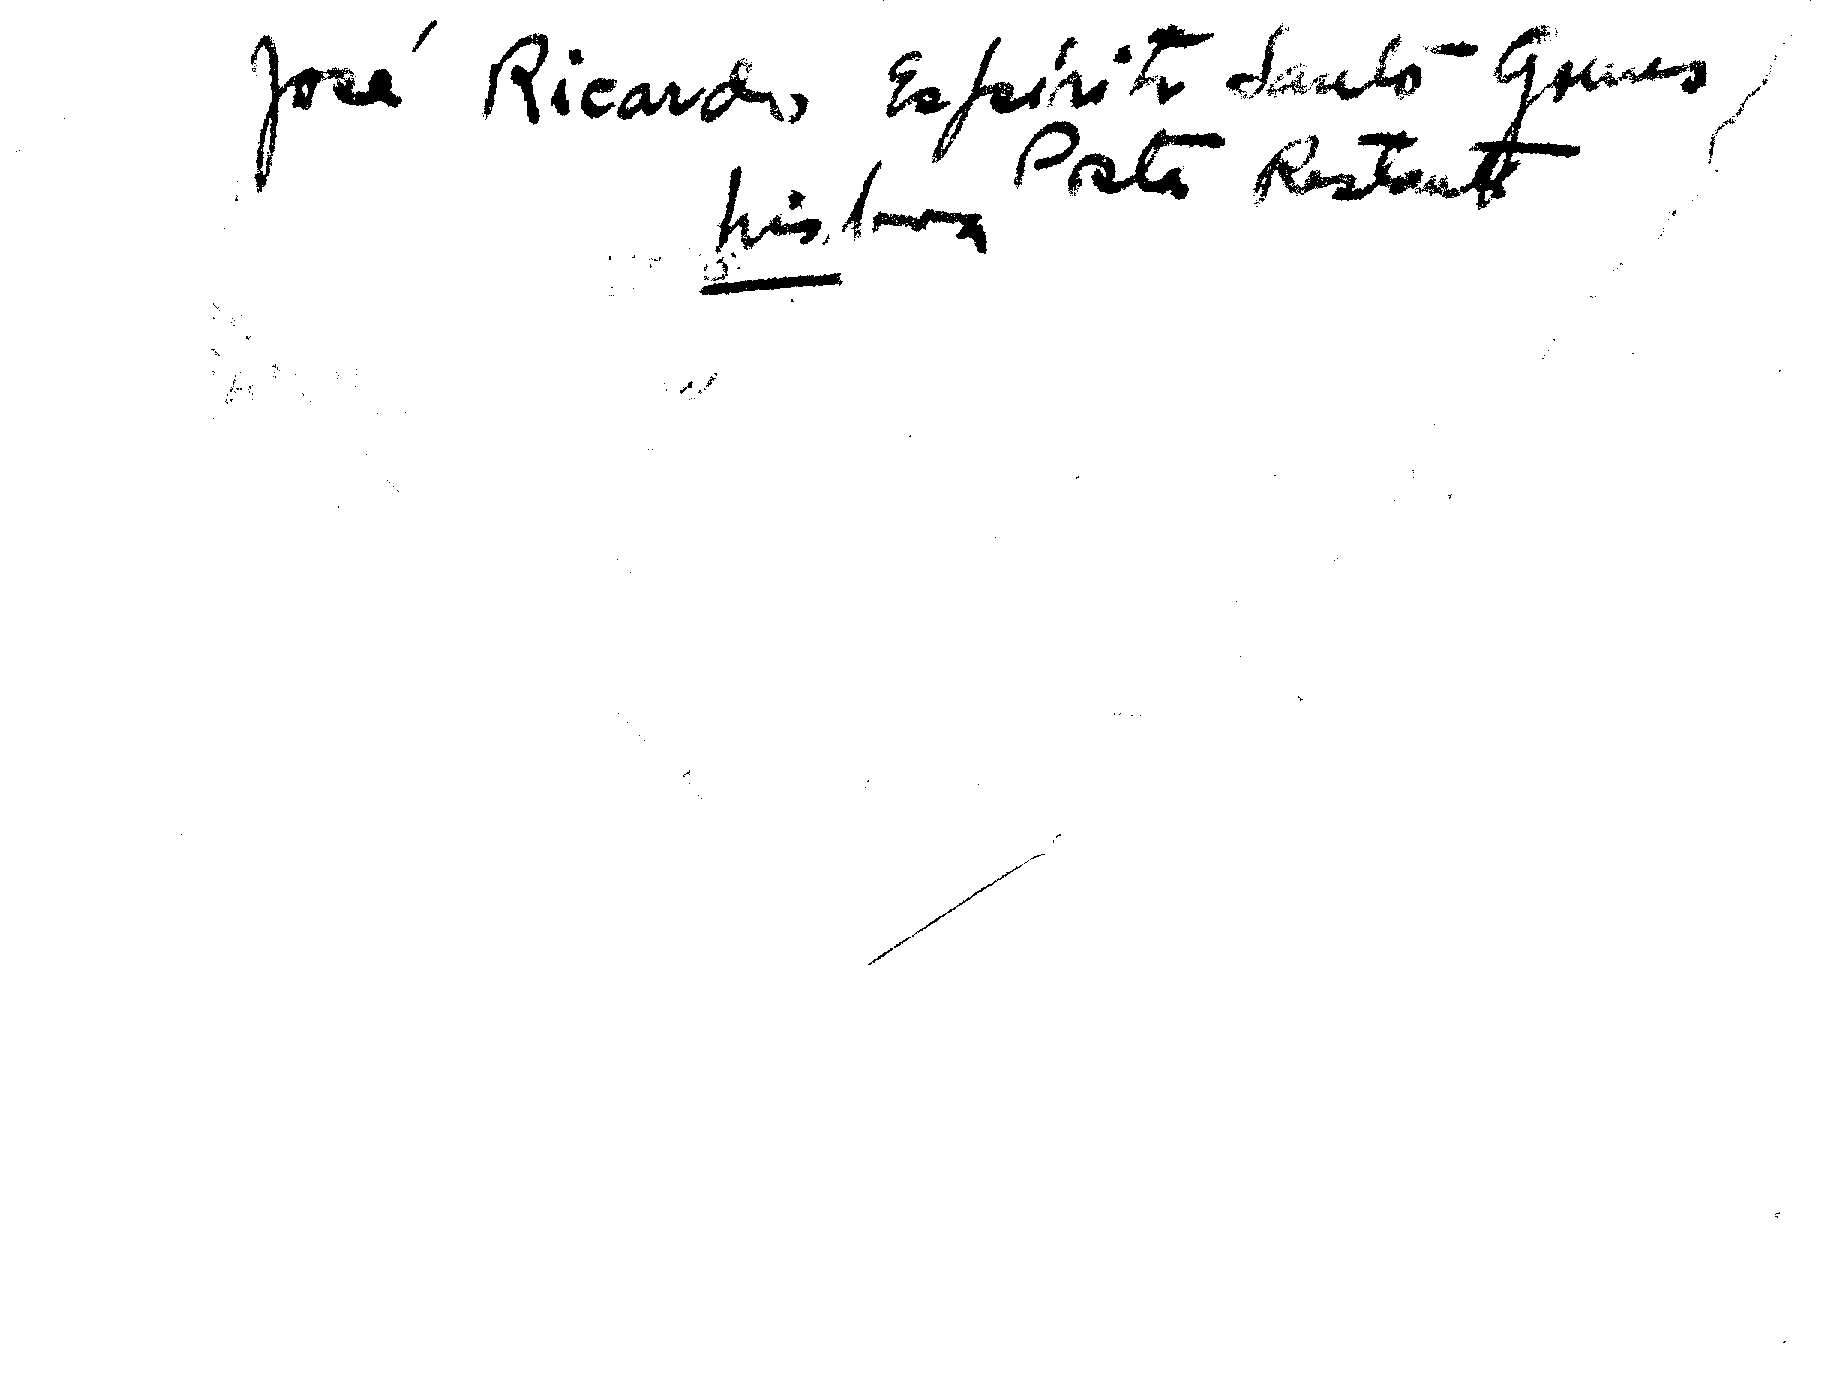 José Ricardo Espírito Santo Gomes
Posta Restante
Lisboa